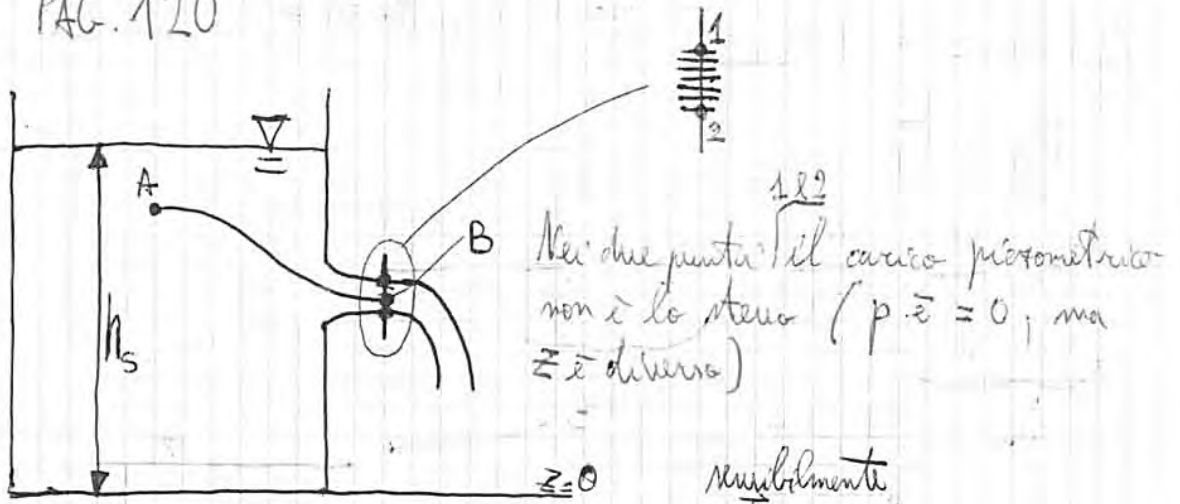 PAG. 120
1
2
A
B
hs
1 e 2
Nei due punti il carico piezometrico
non è lo stesso (p è = 0, ma
z è diverso)
z=0
sensibilmente